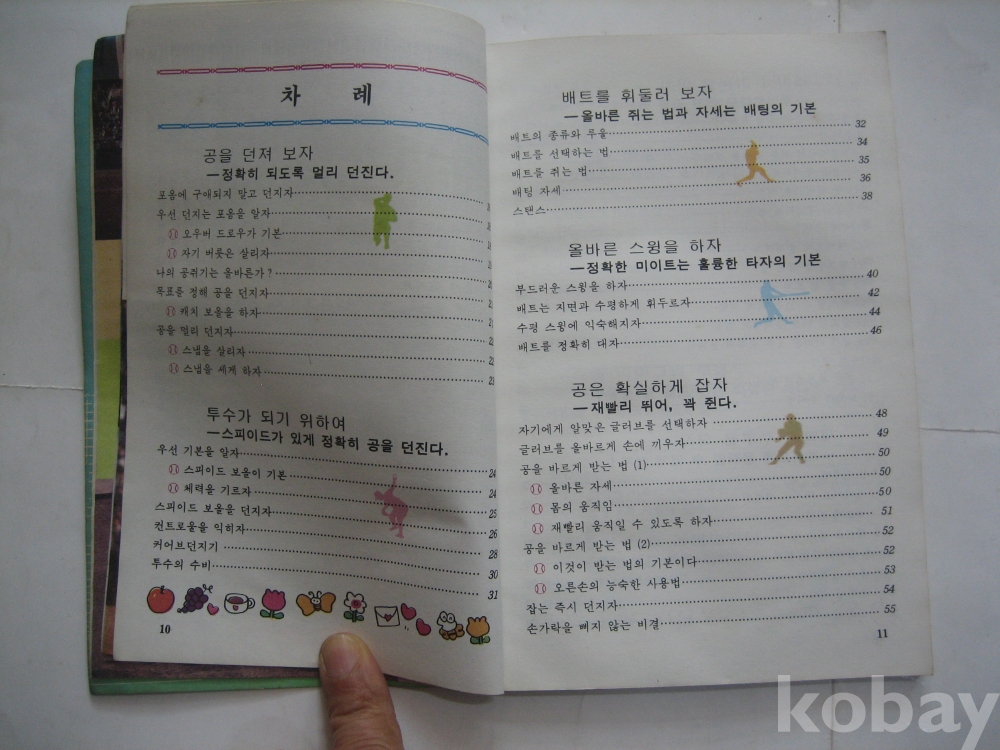 차 례
공을 던져 보자
—정확히 되도록 멀리 던진다.
포옴에 구애되지 말고 던지자
우선 던지는 포옴을 알자
오우버 드로우가 기본
자기 버릇은 살리자
나의 공쥐기는 올바른가?
목표를 정해 공을 던지자
캐치 보올을 하자
공을 멀리 던지자
스냅을 살리자 22
스냅을 세게 하자 23
투수가 되기 위하여
—스피이드가 있게 정확히 공을 던진다.
우선 기본을 알자 24
스피이드 보올이 기본 24
체력을 기르자 25
스피이드 보올을 던지자 26
컨트로울을 익히자 28
커어브던지기 30
투수의 수비 31
10
배트를 휘둘러 보자
—올바른 쥐는 법과 자세는 배팅의 기본
배트의 종류와 루울 32
배트를 선택하는 법 34
배트를 쥐는 법 35
배팅 자세 36
스탠스 38
올바른 스윙을 하자
—정확한 미이트는 훌륭한 타자의 기본
부드러운 스윙을 하자 40
배트는 지면과 수평하게 휘두르자 42
수평 스윙에 익숙해지자 44
배트를 정확히 대자 46
공은 확실하게 잡자
—재빨리 뛰어, 꽉 쥔다.
자기에게 알맞은 글러브를 선택하자 48
글러브를 올바르게 손에 끼우자 49
공을 바르게 받는 법 (1) 50
올바른 자세 50
몸의 움직임 50
재빨리 움직일 수 있도록 하자 51
공을 바르게 받는 법 (2) 52
이것이 받는 법의 기본이다 52
오른손의 능숙한 사용법 53
잡는 즉시 던지자 54
손가락을 삐지 않는 비결 55
11
kobay